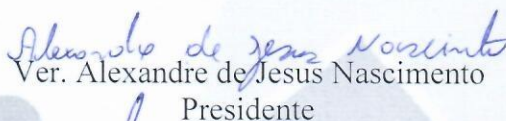 Alexandre de Jesus Nascimento
Ver. Alexandre de Jesus Nascimento
Presidente